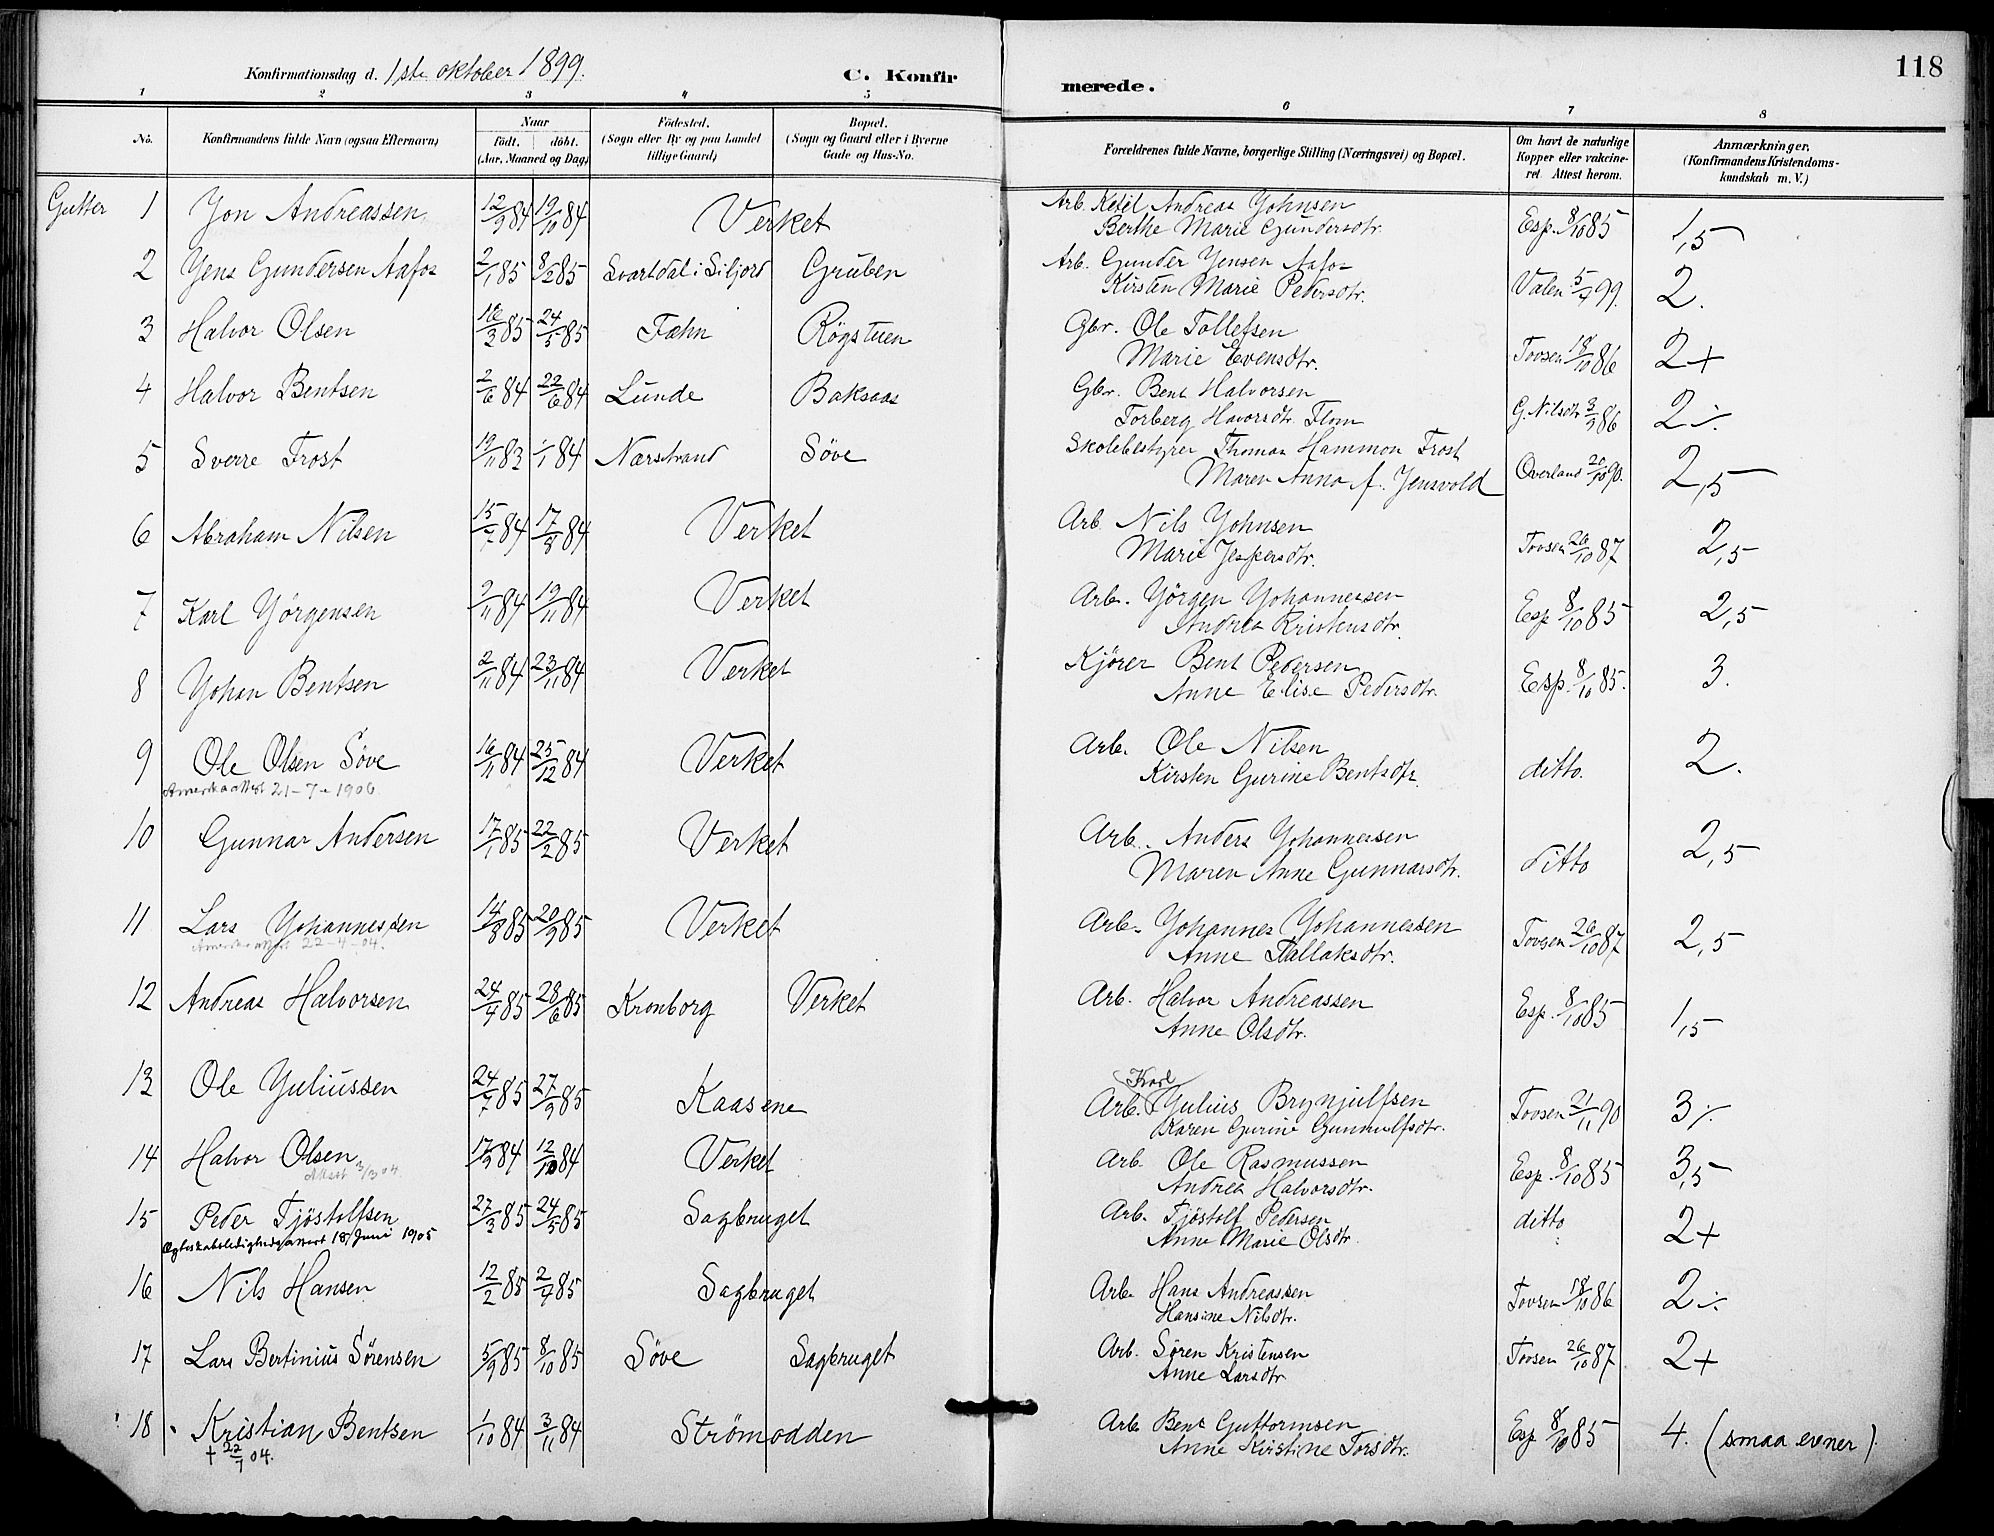 118
Konfirmationsdag d. 1ste oktober 1899.
C. Konfirmerede.
1 2 3 4 5 6 7 8
No. Konfirmandens fulde Navn (ogsaa Efternavn) Naar födt. döbt. (Aar, Maaned og Dag) Födested. (Sogn eller By og paa Landet tillige Gaard) Bopæl. (Sogn og Gaard eller i Byerne Gade og Hus-No. Forældrenes fulde Navne, borgerlige Stilling (Næringsvei) og Bopæl. Om havt de naturlige Kopper eller vakcineret. Attest herom. Anmærkninger. (Konfirmandens Kristendomskundskab m. V.)
Gutter 1 Jon Andreassen 12/9 84 19/10 84 Verket Arb. Ketil Andreas Johnsen Esp. 8/10 85 1,5
Berthe Marie Gundersdtr.
2 Jens Gundersen Aafos 2/1 85 8/2 85 Svartdal i Siljord Gruben Arb. Gunder Jensen Aafos Valen 5/4 99. 2.
Kirsten Marie Pedersdtr.
3 Halvor Olsen 16/3 85 24/5 85 Fæhn Røgstuen Gbr. Ole Tollefsen Tovsen 18/10 86 2+
Marie Evensdtr.
4 Halvor Bentsen 2/6 84 22/6 84 Lunde Baksaas Gbr. Bent Halvorsen G. Nilsdtr 3/9 86 2÷
Torberg Havorsdtr. Flom
5 Sverre Frost 19/11 83 1/1 84 Nærstrand Søve Skolebestyrer Thomas Hammon Frost Overland 20/10 90. 2,5
Maren Anna f. Jensvold
6 Abraham Nilsen 15/7 84 17/8 84 Verket Arb. Nils Johnsen Tovsen 26/10 87 2,5
Marie Jespersdtr.
7 Karl Jörgensen 2/11 84 19/11 84 Verket Arb. Jörgen Johannessen Esp 8/10 85 2,5
Andrea Kristensdtr.
8 Johan Bentsen 2/11 84 23/11 84 Verket Kjörer Bent Pedersen Esp. 8/10 85. 3.
Anne Elise Pedersdtr.
9 Ole Olsen Söve 16/11 84 25/12 84 Verket Arb. Ole Nilsen ditto. 2.
Amerikaattest 21-7-1906. Kirsten Gurine Bentsdtr.
10 Gunnar Andersen 17/1 85 22/2 85 Verket Arb. Anders Johannessen ditto 2,5
Maren Anne Gunnarsdtr.
11 Lars Johannessen 14/8 85 20/9 85 Verket Arb. Johannes Johannessen Tovsen 26/10 87 2,5
Amerikaattest 22-4-04. Anne Tallaksdtr.
12 Andreas Halvorsen 24/4 85 28/6 85 Kronborg Verket Arb. Halvor Andreassen Esp. 8/10 85 1,5
Anne Olsdtr.
13 Ole Juliussen 24/7 85 27/9 85 Kaasene Arb. Karl Julius Brynjulfsen Tovsen 21/11 90 3÷
Karen Gurine Gunnulfsdtr.
14 Halvor Olsen 17/9 84 12/10 84 Verket Arb. Ole Rasmussen Esp. 8/10 85 3,5
Attest 3/3 04. Andrea Halvorsdtr.
15 Peder Tjöstolfsen 27/3 85 24/5 85 Sagbruget Arb. Tjöstolf Pedersen ditto 2+
Ægteskabsledighedsattest 18 Juni 1905 Anne Marie Olsdtr.
16 Nils Hansen 12/2 85 2/4 85 Sagbruget Arb. Hans Andreassen Tovsen 18/10 86 2÷
Hansine Nilsdtr.
17 Lars Bertinius Sörensen 5/9 85 8/10 85 Söve Sagbruget Arb. Sören Kristensen Tovsen 26/10 87 2+
Anne Larsdtr
18 Kristian Bentsen 1/10 84 3/11 84 Strömodden Arb. Bent Guttormsen Esp 8/10 85 4. (smaa evner).
† 22/7 04. Anne Kirstine Torsdtr.